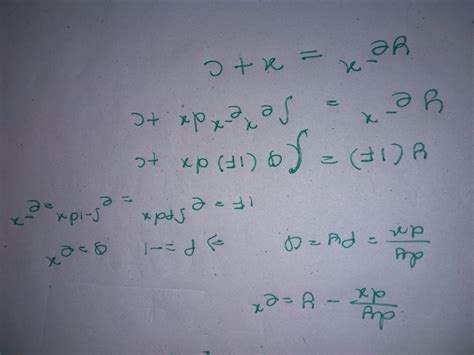 dy/dx - y = e^x
dy/dx = Py = Q => P = -1 Q = e^x
IF = e^∫pdx = e^∫-1dx = e^-x
y(IF) = ∫Q(IF) dx + c
y e^-x = ∫e^x e^-x dx + c
ye^-x = x + c